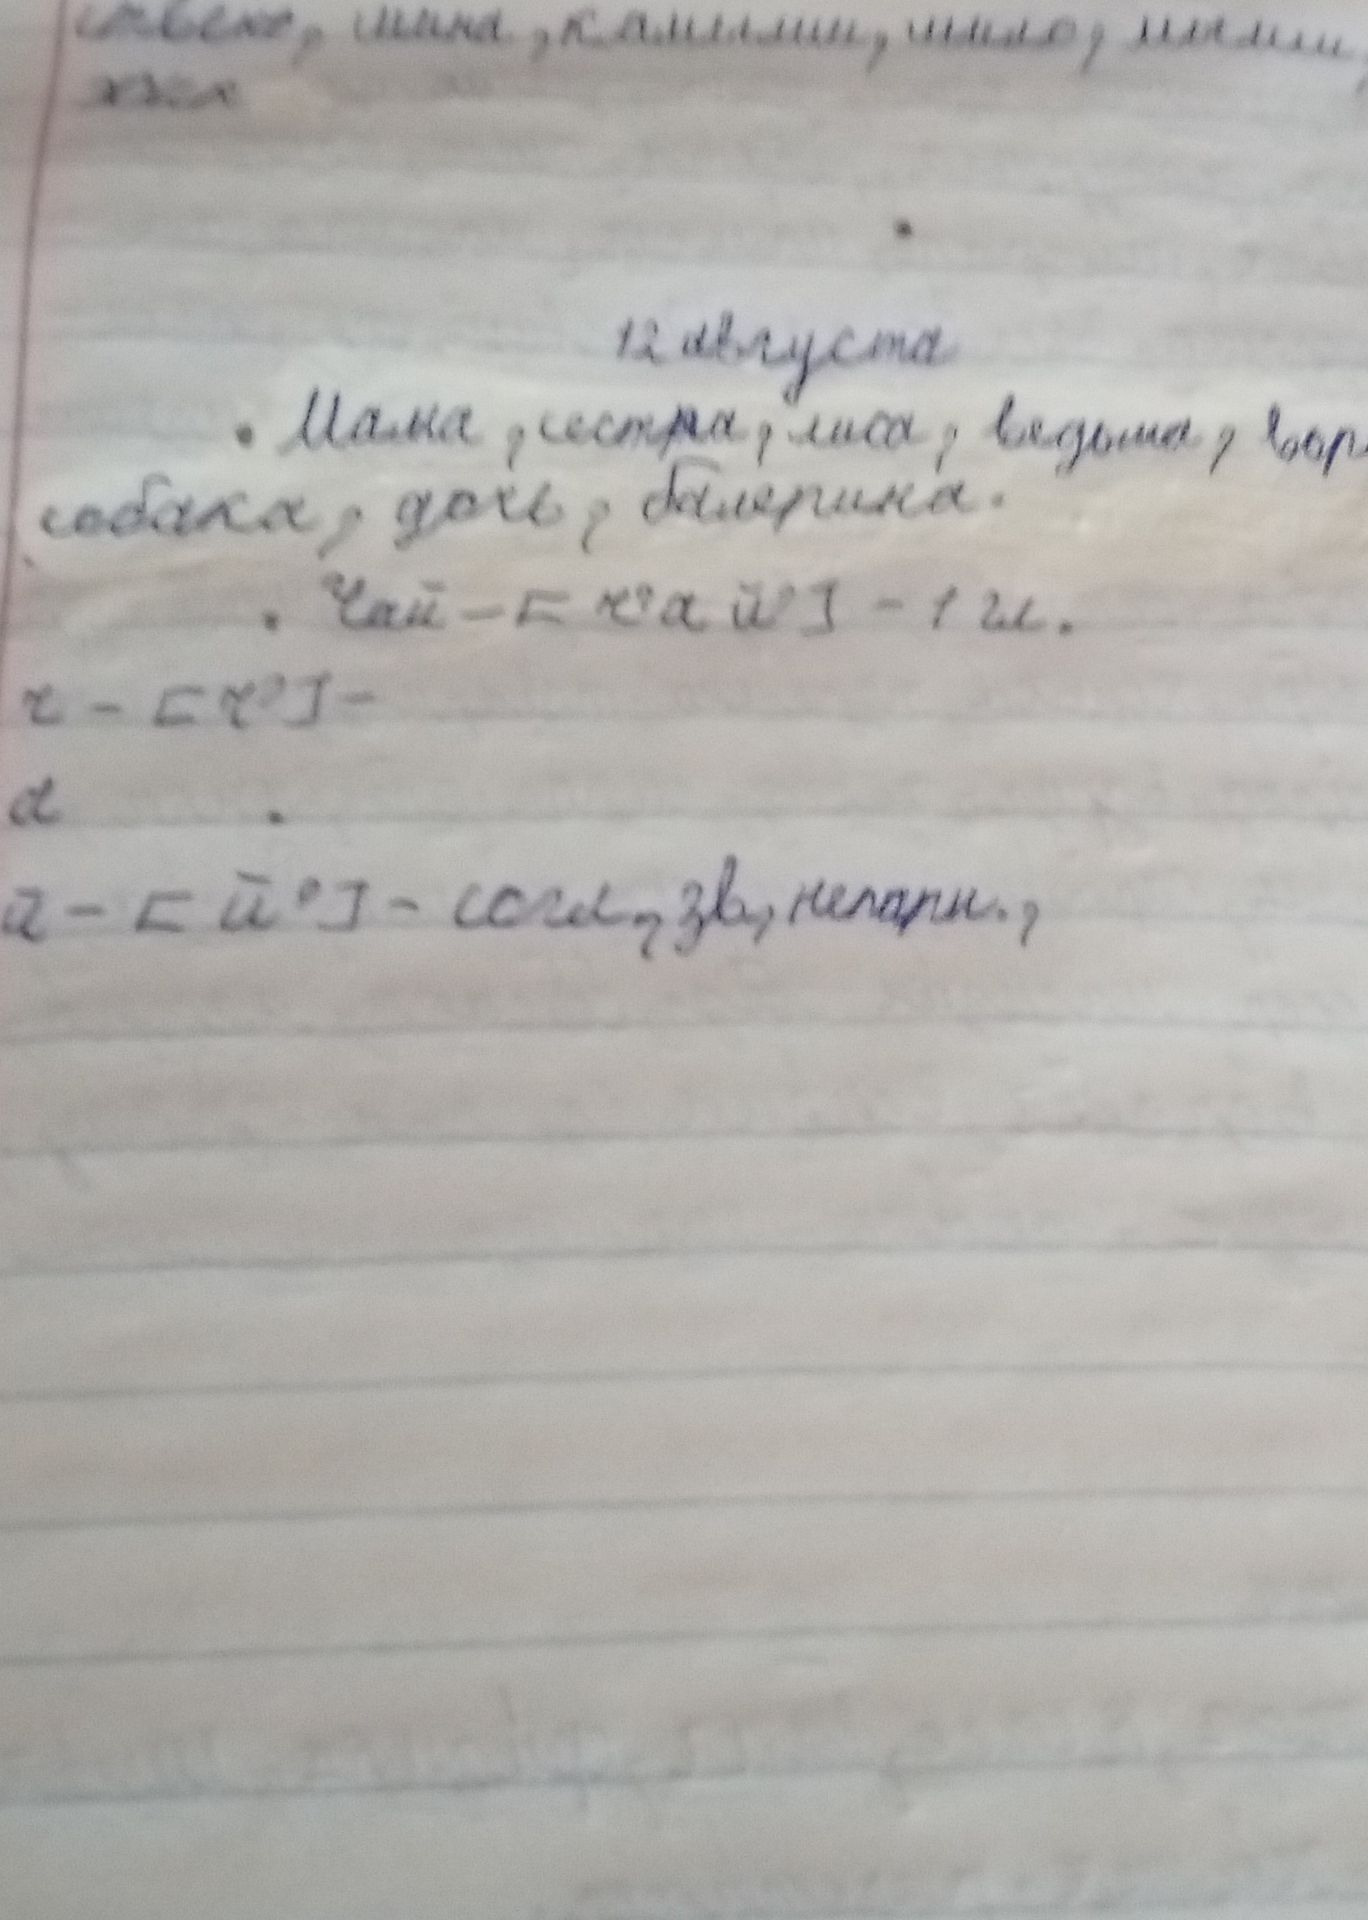 , шина, камыши, шило, мыши,
12 августа
Мама, сестра, лиса, ведьма, вор
собака, дочь, балерина.
Чай - [ч'ай'] - 1 сл.
ч - [ч'] -
а
й - [й'] - согл, зв, непарн.,